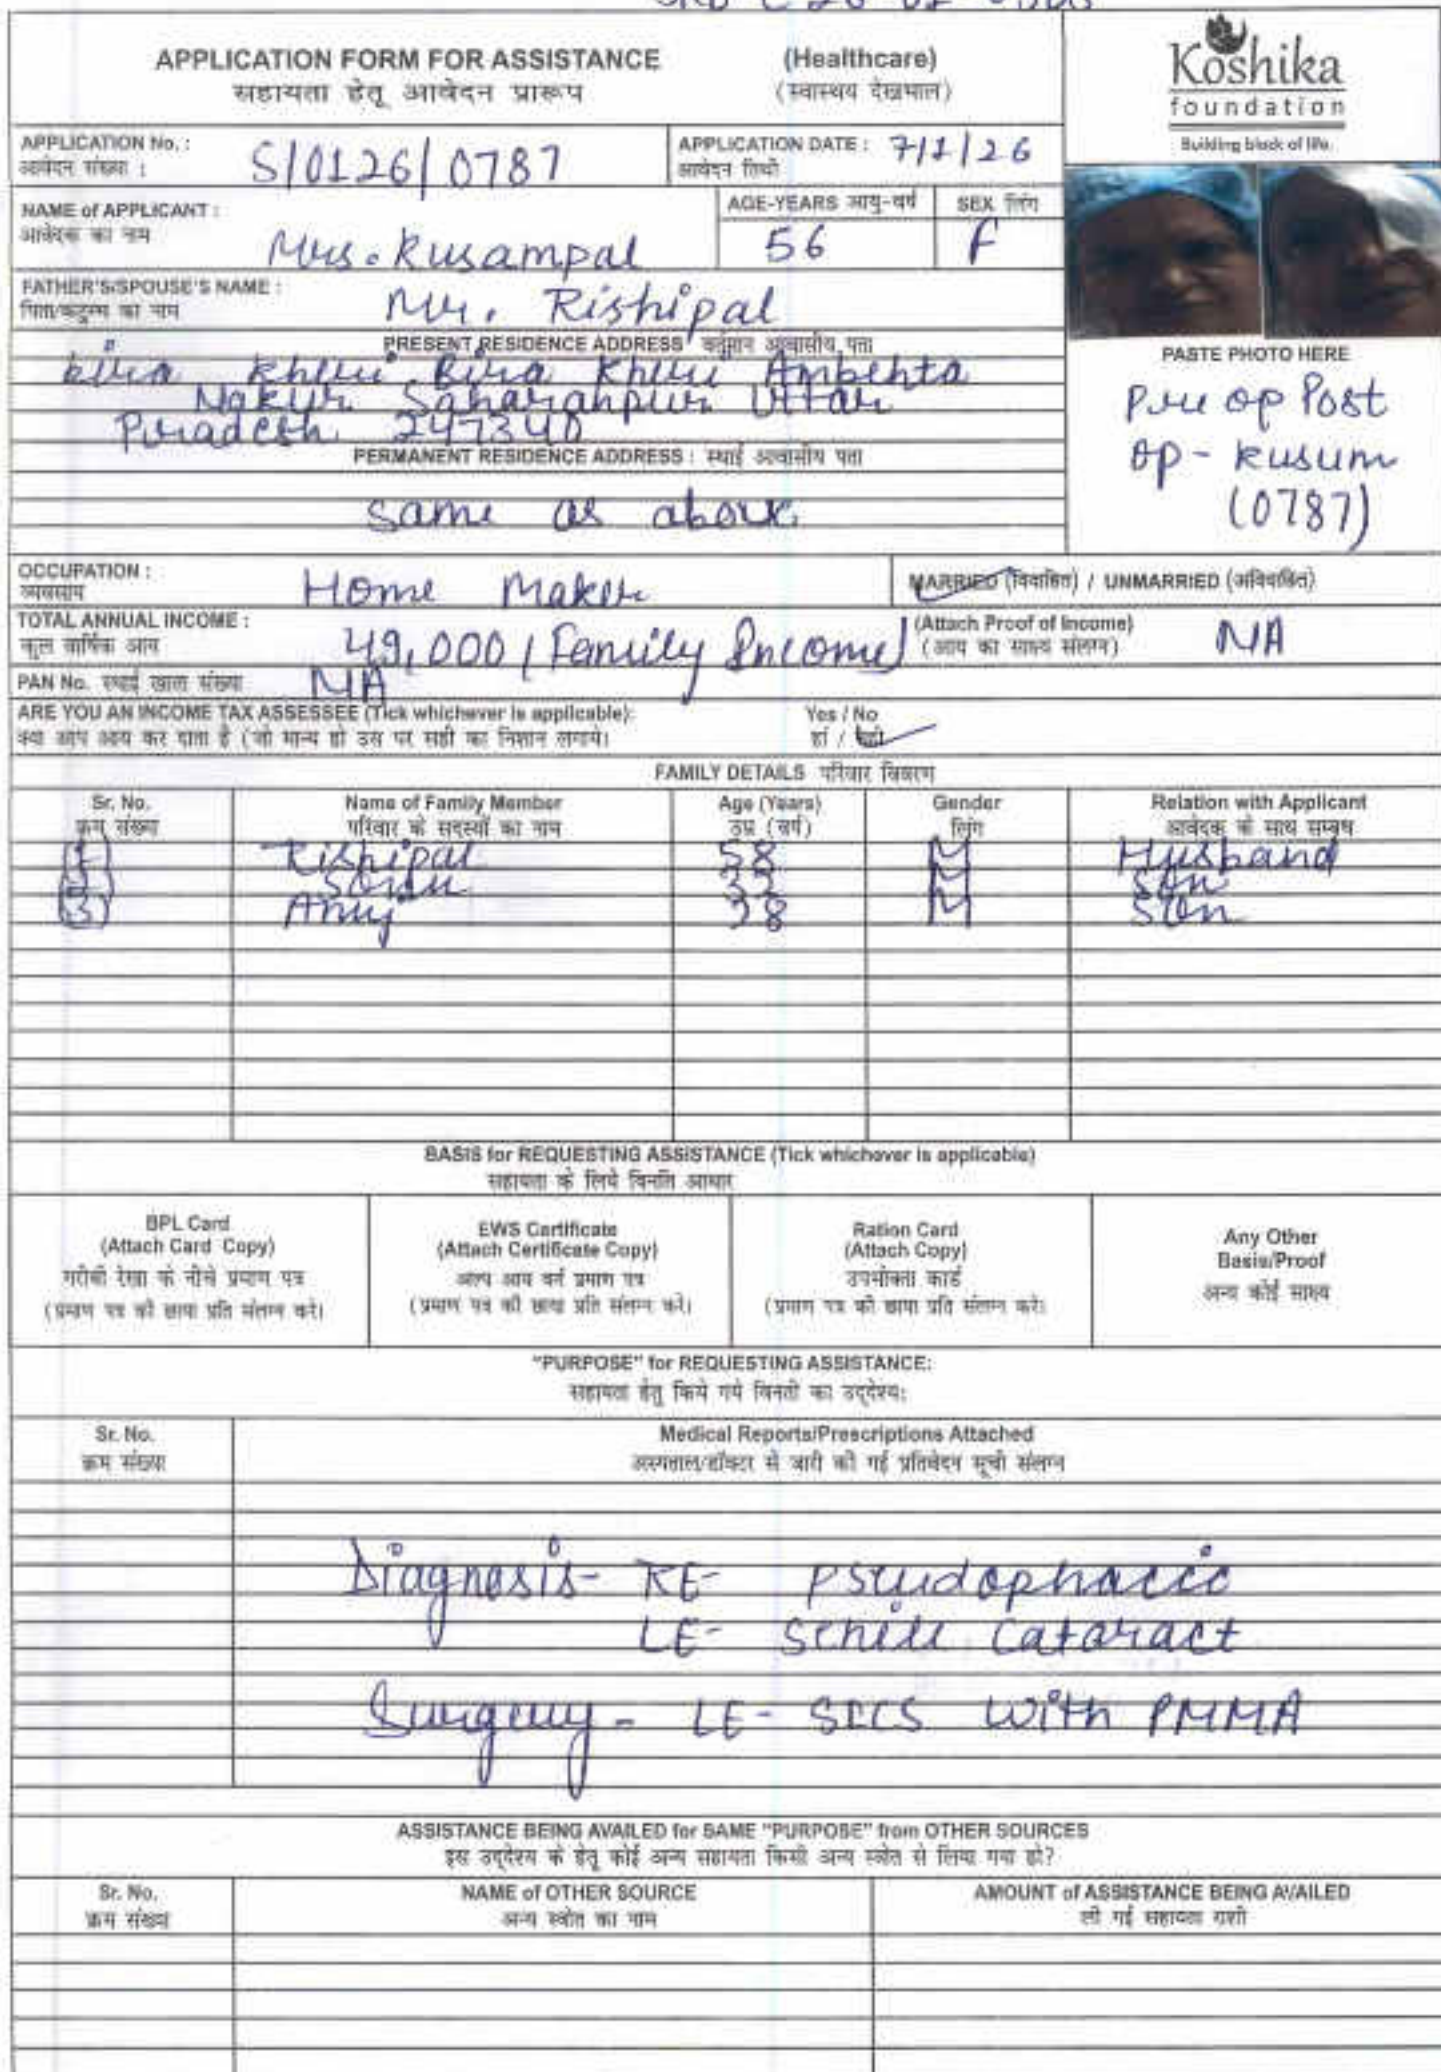 APPLICATION FORM FOR ASSISTANCE (Healthcare)
सहायता हेतू आवेदन प्रारूप (स्वास्थय देखभाल)
Koshika
foundation
Building block of life.
APPLICATION No. : S/0126/0787 APPLICATION DATE : 7/1/26
आवेदन संख्या : आवेदन तिथी
NAME of APPLICANT : AGE-YEARS आयु-वर्ष SEX लिंग
आवेदक का नाम Mrs. Kusampal 56 F
FATHER'S/SPOUSE'S NAME : Mr. Rishipal
पिता/कटुम्ब का नाम
PRESENT RESIDENCE ADDRESS वर्तमान आवासीय पता
bira kheri Bira Kheri Ambehta
Nakur Saharanpur Uttar
Pradesh 247340
PERMANENT RESIDENCE ADDRESS : स्थाई आवासीय पता
same as above.
PASTE PHOTO HERE
Pre op Post
op - kusum
(0787)
OCCUPATION : Home Maker MARRIED (विवाहित) / UNMARRIED (अविवाहित)
व्यवसाय
TOTAL ANNUAL INCOME : 49,000 (Family Income) (Attach Proof of Income) NA
कुल वार्षिक आय (आय का साक्ष्य संलग्न)
PAN No. स्थाई खाता संख्या NA
ARE YOU AN INCOME TAX ASSESSEE (Tick whichever is applicable): Yes / No
क्या आप आय कर दाता है (जो मान्य हो उस पर सही का निशान लगाये। हां / नही
FAMILY DETAILS परिवार विवरण
Sr. No. Name of Family Member Age (Years) Gender Relation with Applicant
क्रम संख्या परिवार के सदस्यों का नाम उम्र (वर्ष) लिंग आवेदक के साथ सम्बंध
(1) Rishipal 58 M Husband
(2) M Son
(3) Anuj M Son
BASIS for REQUESTING ASSISTANCE (Tick whichever is applicable)
सहायता के लिये विनति आधार
BPL Card
(Attach Card Copy)
गरीबी रेखा के नीचे प्रमाण पत्र
(प्रमाण पत्र की छाया प्रति संलग्न करे)
EWS Certificate
(Attach Certificate Copy)
अल्प आय वर्ग प्रमाण पत्र
(प्रमाण पत्र की छाया प्रति संलग्न करे)
Ration Card
(Attach Copy)
उपभोक्ता कार्ड
(प्रमाण पत्र की छाया प्रति संलग्न करे)
Any Other
Basis/Proof
अन्य कोई साक्ष्य
"PURPOSE" for REQUESTING ASSISTANCE:
सहायता हेतु किये गये विनती का उद्देश्य:
Sr. No. Medical Reports/Prescriptions Attached
क्रम संख्या अस्पताल/डॉक्टर से जारी की गई प्रतिवेदन सूची संलग्न
Diagnosis- RE- Pseudophacic
LE- Senile Cataract
Surgery - LE- SICS with PMMA
ASSISTANCE BEING AVAILED for SAME "PURPOSE" from OTHER SOURCES
इस उद्देश्य के हेतू कोई अन्य सहायता किसी अन्य स्त्रोत से लिया गया हो?
Sr. No. NAME of OTHER SOURCE AMOUNT of ASSISTANCE BEING AVAILED
क्रम संख्या अन्य स्त्रोत का नाम ली गई सहायता राशी